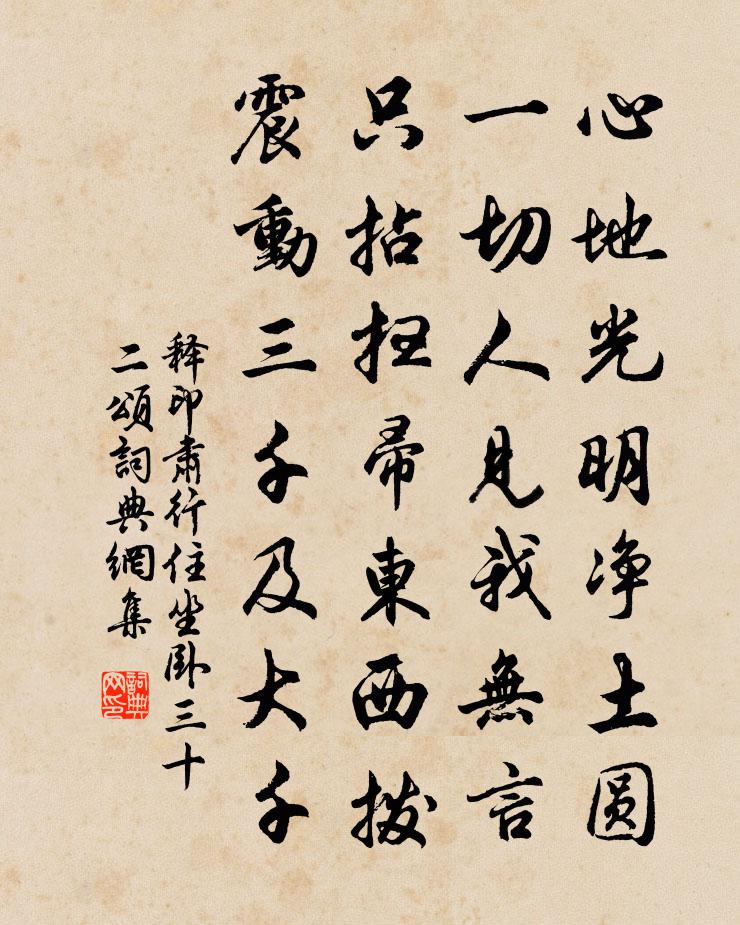 心地光明净土圆
一切人見我無言
只拈扫帚東西拨
震動三千及大千
释印肃行住坐卧三十
二頌詞典網集
詞典网印